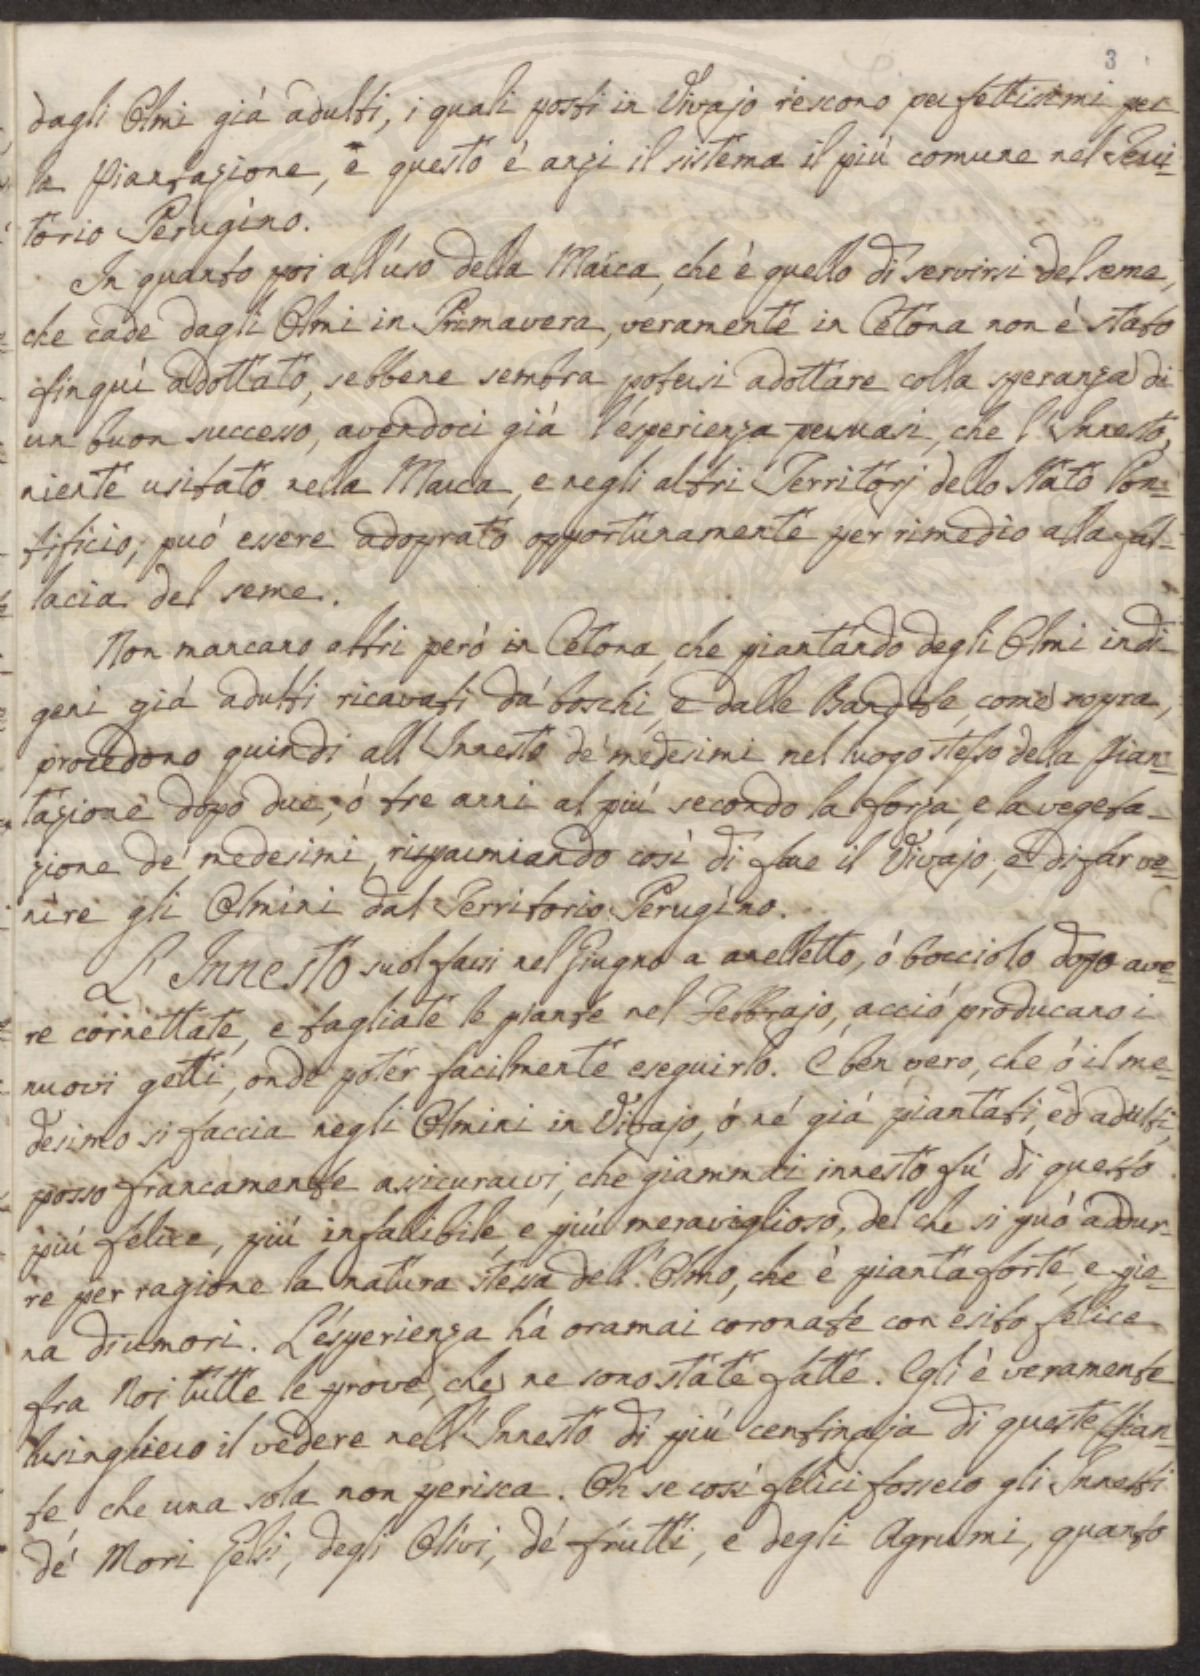 3
dagli Olmi giá adulti, i quali posti in Vivajo riescono perfettissimi per
la Piantazione, e questo é anzi il sistema il piú comune nel Terri-
torio Perugino.
In quanto poi all'uso della Marca, che é quello di servirsi del seme,
che cade dagli Olmi in Primavera, veramente in Cetona non é stato
finquì adottato, sebbene sembra potersi adottare colla speranza di
un buon successo, avendoci giá l'esperienza persuasi, che l'Innesto,
niente usitato nella Marca, e negli altri Territorj dello Stato Pon-
tificio, puó essere adoprato opportunamente per rimedio alla fal-
lacia del seme.
Non mancano altri peró in Cetona, che piantando degli Olmi indi-
geni giá adulti ricavati da' boschi, e dalle Bandite, come sopra,
procedono quindi all'Innesto de' medesimi nel luogo stesso della Pian-
tazione dopo due, ó tre anni al piú secondo la forza, e la vegeta-
zione de' medesimi, risparmiando così di fare il Vivajo, e di far ve-
nire gli Olmini dal Territorio Perugino.
L'Innesto suol farsi nel Giugno a anelletto, ó bocciolo dopo ave-
re cornettate, e tagliate le piante nel Febbrajo, acció producano i
nuovi getti, onde poter facilmente eseguirlo. É ben vero, che ó il me-
desimo si faccia negli Olmini in Vivajo, ó né giá piantati, ed adulti,
posso francamente assicurarvi, che giammai innesto fú di questo
piú felice, piú infallibile, e piú meraviglioso, del che si puó addur-
re per ragione la natura stessa dell'Olmo, che é pianta forte, e pie-
na di umori. L'esperienza há oramai coronate con esito felice
fra Noi tutte le prove, che ne sono state fatte. Egli é veramente
lusinghiero il vedere nell'Innesto di piú centinaja di queste Pian-
te che una sola non perisca. Oh se così felici fossero gli Innesti
de' Mori Gelsi, degli Olivi, de' frutti, e degli Agrumi, quanto